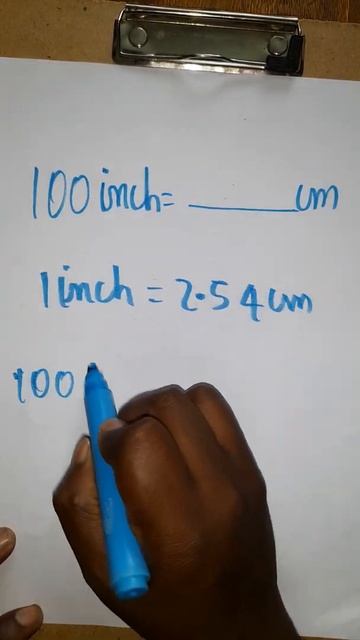 100 inch = ______ cm
1 inch = 2.54 cm
100